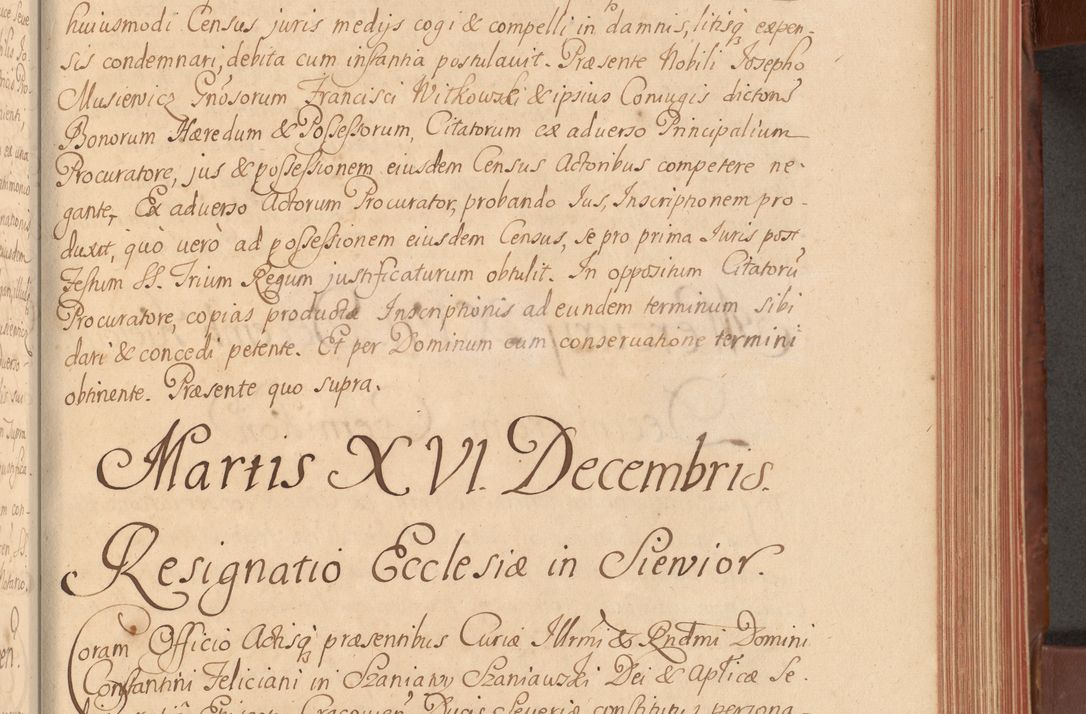 huiusmodi Census juris medijs cogi & compelli in damnis, litisq₃ expen-
sis condemnari, debita cum instantia postulavit. Præsente Nobili Josepho
Musiewicz Gnosorum Francisci Witkowski & ipsius Coniugis dictorū
Bonorum Hæredum & Possessorum, Citatorum ex adverso Principalium
Procuratore, jus & possessionem eiusdem Census Actoribus competere ne-
gante, Ex adverso Actorum Procurator, probando Ius, Inscriptionem pro-
duxit, quò verò ad possessionem eiusdem Census, se pro prima Iuris post
Festum SS. Trium Regum justificaturum obtulit. In oppositum Citatorū
Procuratore, copias productæ Inscriptionis ad eundem terminum sibi
dari & concedi petente. Et per Dominum cum conservatione termini
obtinente. Præsente quo supra.
Martis XVI. Decembris.
Resignatio Ecclesiæ in Siewior.
Coram Officio Actisq₃ præsentibus Curiæ Illrmi & Rndmi Domini
Constantini Feliciani in Szaniawy Szaniawski Dei & Aplicæ Se-
Cracovien Ducis Severiæ constituti persona-